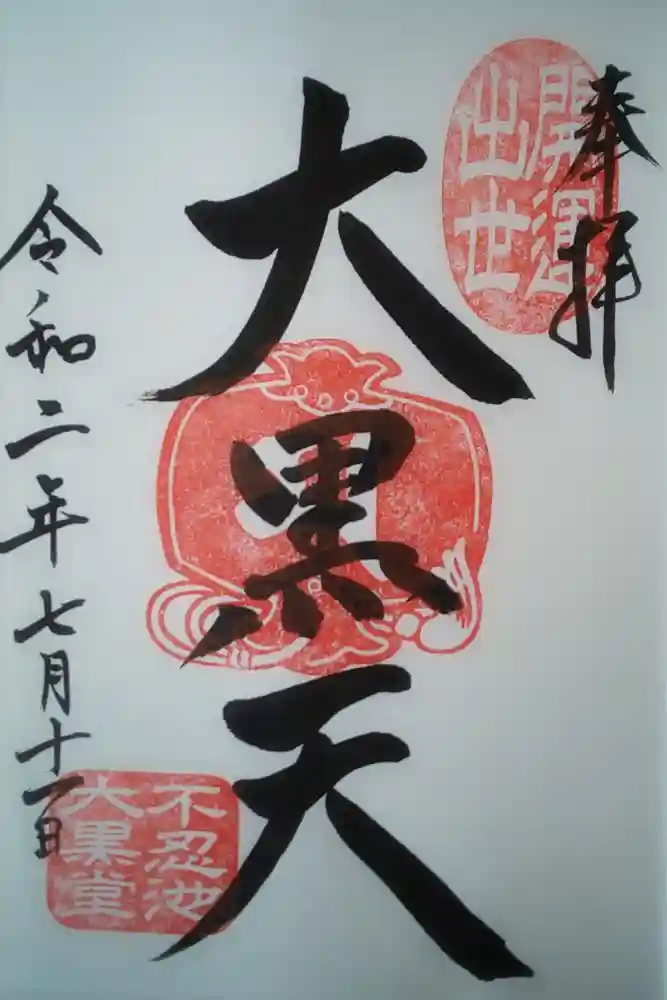 奉拝
開運
出世
大黒天
令和二年七月十一日
不忍池
大黒堂